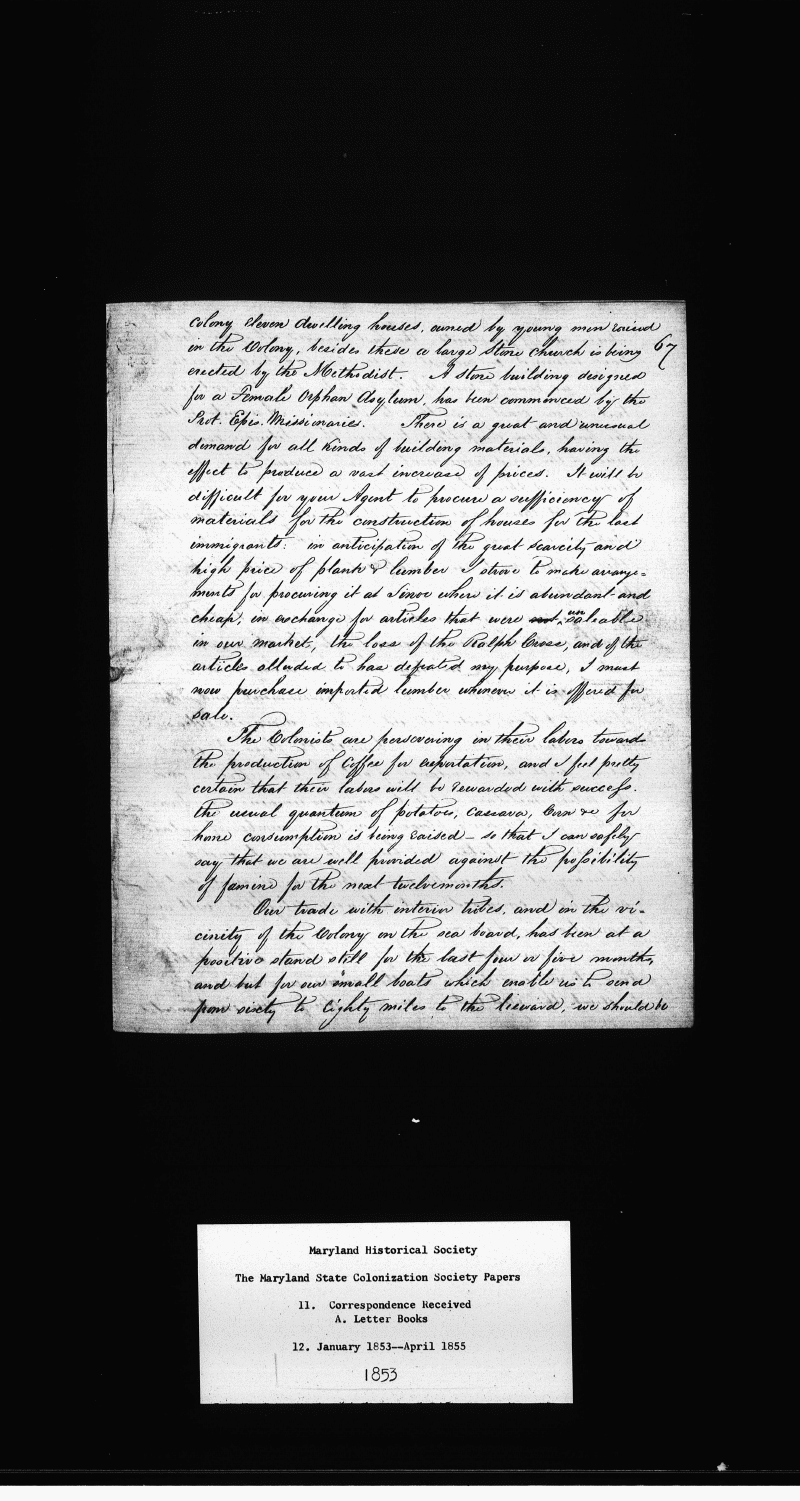 colony eleven dwelling houses, owned by young men raised
67
in the Colony, besides these a large Stone church is being
erected by the Methodist. A stone building designed
for a Female Orphan Asylum, has been commenced by the
Prot. Epis. Missionaries. There is a great and unusual
demand for all kinds of building materials, having the
effect to produce a vast increase of prices. It will be
difficult for your Agent to procure a sufficiency of
materials for the construction of houses for the last
immigrants: in anticipation of the great scarcity and
high price of plank & lumber I strove to make arrange=
ments for procuring it at Sinoe where it is abundant and
cheap, in exchange for articles that were not unsaleable
in our market, the loss of the Ralph Cross, and of the
articles alluded to has defeated my purpose, I must
now purchase imported lumber whenever it is offered for
sale.
The Colonists are persevering in their labors toward
the production of Coffee for exportation, and I feel pretty
certain that their labors will be rewarded with success.
the usual quantum of potatoes, cassava, corn &c for
home consumption is being raised - so that I can safely
say that we are well provided against the possibility
of famine for the next twelvemonths.
Our trade with interior tribes, and in the vi-
cinity of the Colony on the sea board, has been at a
positive stand still for the last four or five months,
and but for our small boats which enable us to send
from sixty to eighty miles to the leeward, we should be
Maryland Historical Society
The Maryland State Colonization Society Papers
11. Correspondence Received
A. Letter Books
12. January 1853--April 1855
1853